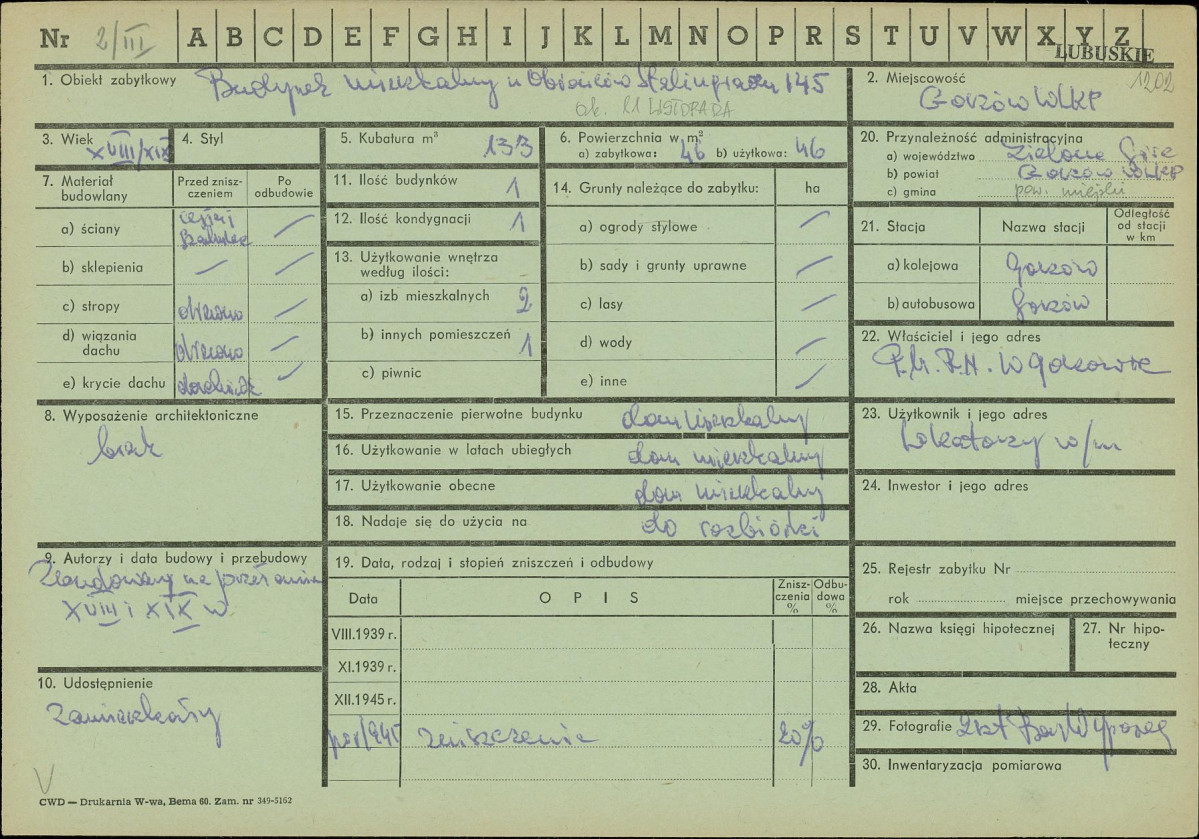 Nr 2/III A B C D E F G H I J K L M N O P R S T U V W X Y Z
LUBUSKIE
1. Obiekt zabytkowy Budynek mieszkalny u. Obrońców Stalingradu 145
ob. 11 LISTOPADA
2. Miejscowość 1202
Gorzów WLKP
3. Wiek XVIII/XIX
4. Styl
5. Kubatura m³ 133
6. Powierzchnia w m²
a) zabytkowa: 46 b) użytkowa: 46
20. Przynależność administracyjna
a) województwo Zielona Góra
b) powiat Gorzów WLKP
c) gmina pow. miejski
7. Materiał budowlany
Przed zniszczeniem
Po odbudowie
a) ściany —
b) sklepienia — —
c) stropy drewno —
d) wiązania dachu drewno —
e) krycie dachu dachówka —
11. Ilość budynków 1
12. Ilość kondygnacji 1
13. Użytkowanie wnętrza według ilości:
a) izb mieszkalnych 2
b) innych pomieszczeń 1
c) piwnic
14. Grunty należące do zabytku: ha
a) ogrody stylowe —
b) sady i grunty uprawne —
c) lasy —
d) wody —
e) inne —
21. Stacja
Nazwa stacji
Odległość od stacji w km
a) kolejowa Gorzów
b) autobusowa Gorzów
22. Właściciel i jego adres
P.M.R.N. w Gorzowie
8. Wyposażenie architektoniczne
brak
15. Przeznaczenie pierwotne budynku dom mieszkalny
16. Użytkowanie w latach ubiegłych dom mieszkalny
17. Użytkowanie obecne dom mieszkalny
18. Nadaje się do użycia na do rozbiórki
23. Użytkownik i jego adres
Lokatorzy w/m
24. Inwestor i jego adres
9. Autorzy i data budowy i przebudowy
Zbudowany na przełomie
XVIII i XIX w
19. Data, rodzaj i stopień zniszczeń i odbudowy
Data
OPIS
Zniszczenia %
Odbudowa %
VIII.1939 r.
XI.1939 r.
XII.1945 r.
1945 zniszczenie 20%
25. Rejestr zabytku Nr
rok miejsce przechowywania
26. Nazwa księgi hipotecznej
27. Nr hipoteczny
10. Udostępnienie
Zamieszkały
28. Akta
29. Fotografie
30. Inwentaryzacja pomiarowa
V
CWD — Drukarnia W-wa, Bema 60. Zam. nr 349-5162